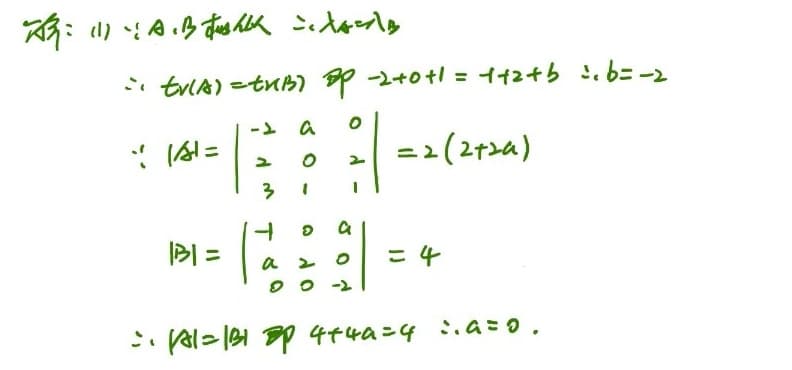 解: (1) ∵ A、B 相似 ∴ λA=λB
∴ tr(A)=tr(B) 即 -2+0+1 = -1+2+b ∴ b=-2
∵ |A| = | -2 a 0 |
| 2 0 2 | = 2(2+2a)
| 3 1 1 |
|B| = | -1 0 a |
| a 2 0 | = 4
| 0 0 -2 |
∴ |A|=|B| 即 4+4a=4 ∴ a=0.